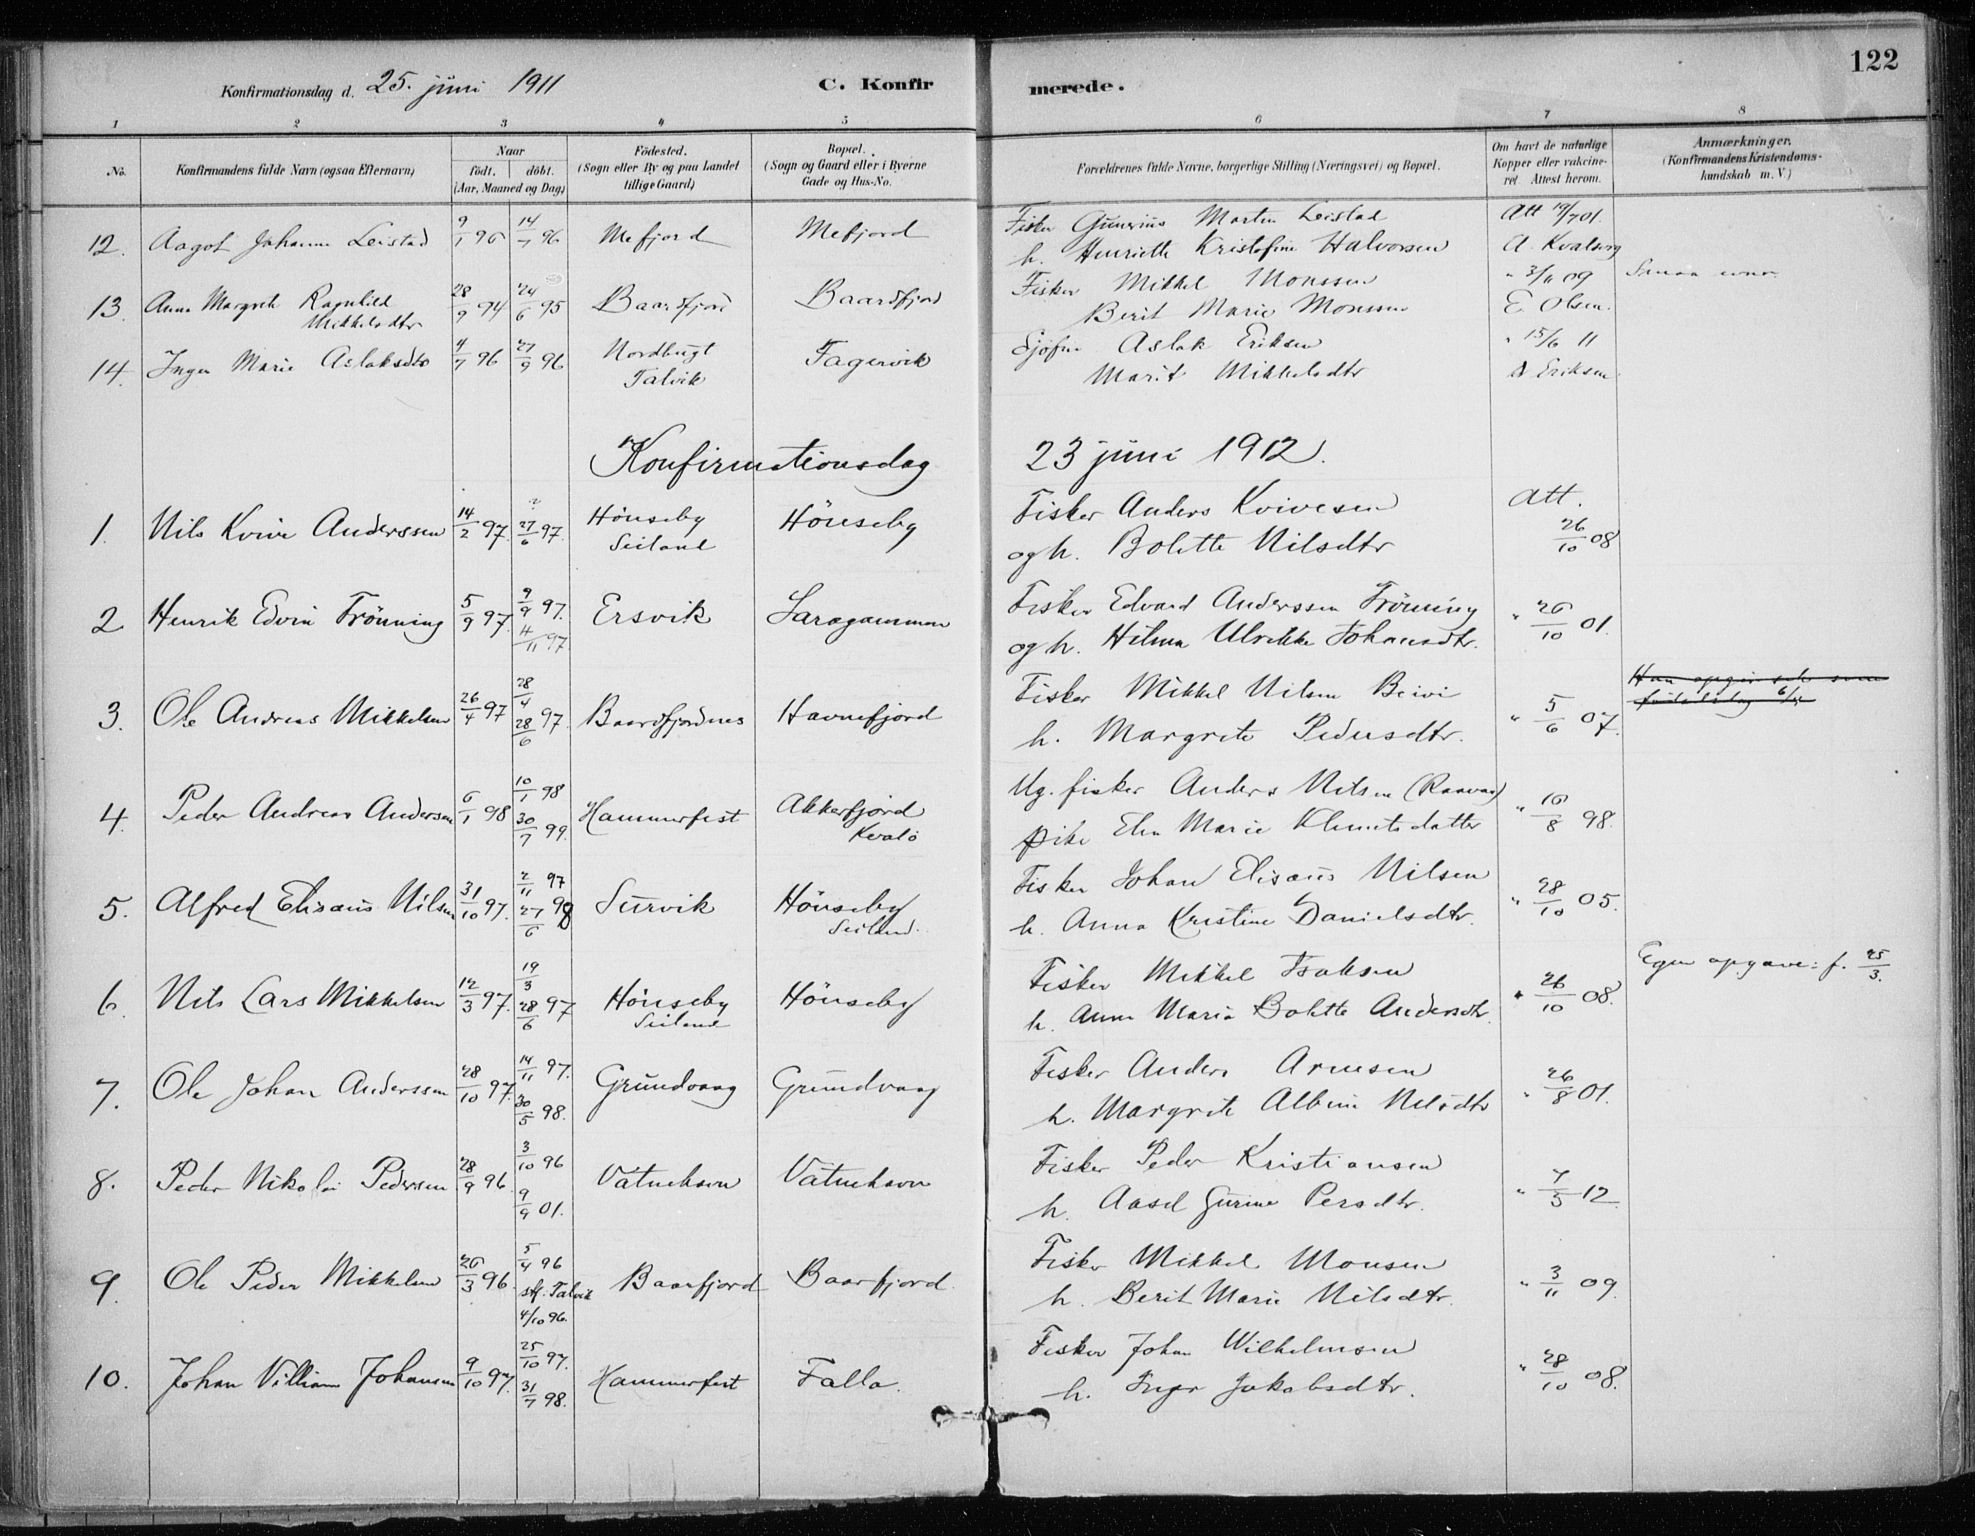 122
Konfirmationsdag d. 25. juni 1911
C. Konfirmerede.
1 2 3 4 5 6 7 8
No.
Konfirmandens fulde Navn (ogsaa Efternavn)
Naar
født. døbt.
(Aar, Maaned og Dag)
Födested.
(Sogn eller By og paa Landet
tillige Gaard)
Bopæl.
(Sogn og Gaard eller i Byerne
Gade og Hus-No.
Forældrenes fulde Navne, borgerlige Stilling (Næringsvei) og Bopæl.
Om havt de naturlige
Kopper eller vakcine-
ret. Attest herom.
Anmærkninger.
(Konfirmandens Kristendoms-
kundskab m. V.)
12. Aagot Johanne Leistad 9/1 96 14/7 96 Mefjord Mefjord Fisker Gunerius Martin Leistad Att 19/7 01.
h. Henriette Kristofine Halvorsen A. Kvalsvig
13. Anna Margrete Ragnhild 28/9 94 24/6 95 Baardfjord Baardfjord Fisker Mikkel Monssen " 3/11 09 Smaa evner
Mikkelsdtr Berit Marie Monssen E. Olsen.
14. Inger Marie Aslaksdtr 4/7 96 27/9 96 Nordbugt Fagervik Sjöfin Aslak Eriksen " 15/6 11
Talvik Marit Mikkelsdtr A Eriksen
Konfirmationsdag 23 juni 1912.
1. Nils Kvive Anderssen 14/2 97. 27/6 97. Hönseby Hönseby Fisker Anders Kvivesen Att.
Seiland og h. Bolette Nilsdtr 26/10 08
2 Henrik Edvin Trönning 5/9 97. 9/9 97. Ersvik Saragammen Fisker Edvard Anderssen Trönning " 26/10 01.
4/11 97 og h. Hilma Ulrikke Johansdtr.
3. Ole Andreas Mikkelsen 26/4 97 28/4 Baardfjordnes Havnefjord Fisker Mikkel Nilsen Beivi
28/6 97. h. Margrete Pedersdtr. " 5/6 07.
4. Peder Andreas Andersen 6/1 98 10/1 98 Hammerfest Akkarfjord Ug. fisker Anders Nilsen (Raavas) " 10/8 98.
30/7 99. Kvalö pike Elen Marie Klemetsdatter
5. Alfred Elisæus Nilsen 31/10 97. 2/11 97 Survik Hönseby Fisker Johan Elisæus Nilsen " 28/10 05.
27/6 98 Seiland. h. Anna Kristine Danielsdtr.
6. Nils Lars Mikkelsen 12/3 97. 19/3 Hönseby Hönseby Fisker Mikkel Isaksen Egen opgave: f. 25/3.
28/6 97 Seiland h. Anne Maria Bolette Andersdtr. " 26/10 08.
7. Ole Johan Anderssen 28/10 97. 14/11 97. Grundvaag Grundvaag Fisker Anders Arnesen " 26/8 01.
30/5 98. h. Margrete Albine Nilsdtr
8. Peder Nikolai Pedersen 28/9 96. 3/10 96 Vatnehavn Vatnehavn Fisker Peder Kristiansen
9/9 01. h. Aasel Gurine Persdtr. " 7/5 12
9. Ole Peder Mikkelsen 26/3 96. 5/4 96 Baarfjord Baarfjord. Fisker Mikkel Monsen
stf. Talvik h. Berit Marie Nilsdtr. " 3/11 09.
4/10 96.
10. Johan Villiam Johansen 9/10 97. 25/10 97. Hammerfest Falla. Fisker Johan Wilhelmsen " 28/10 08.
31/7 98. h. Inger Jakobsdtr.